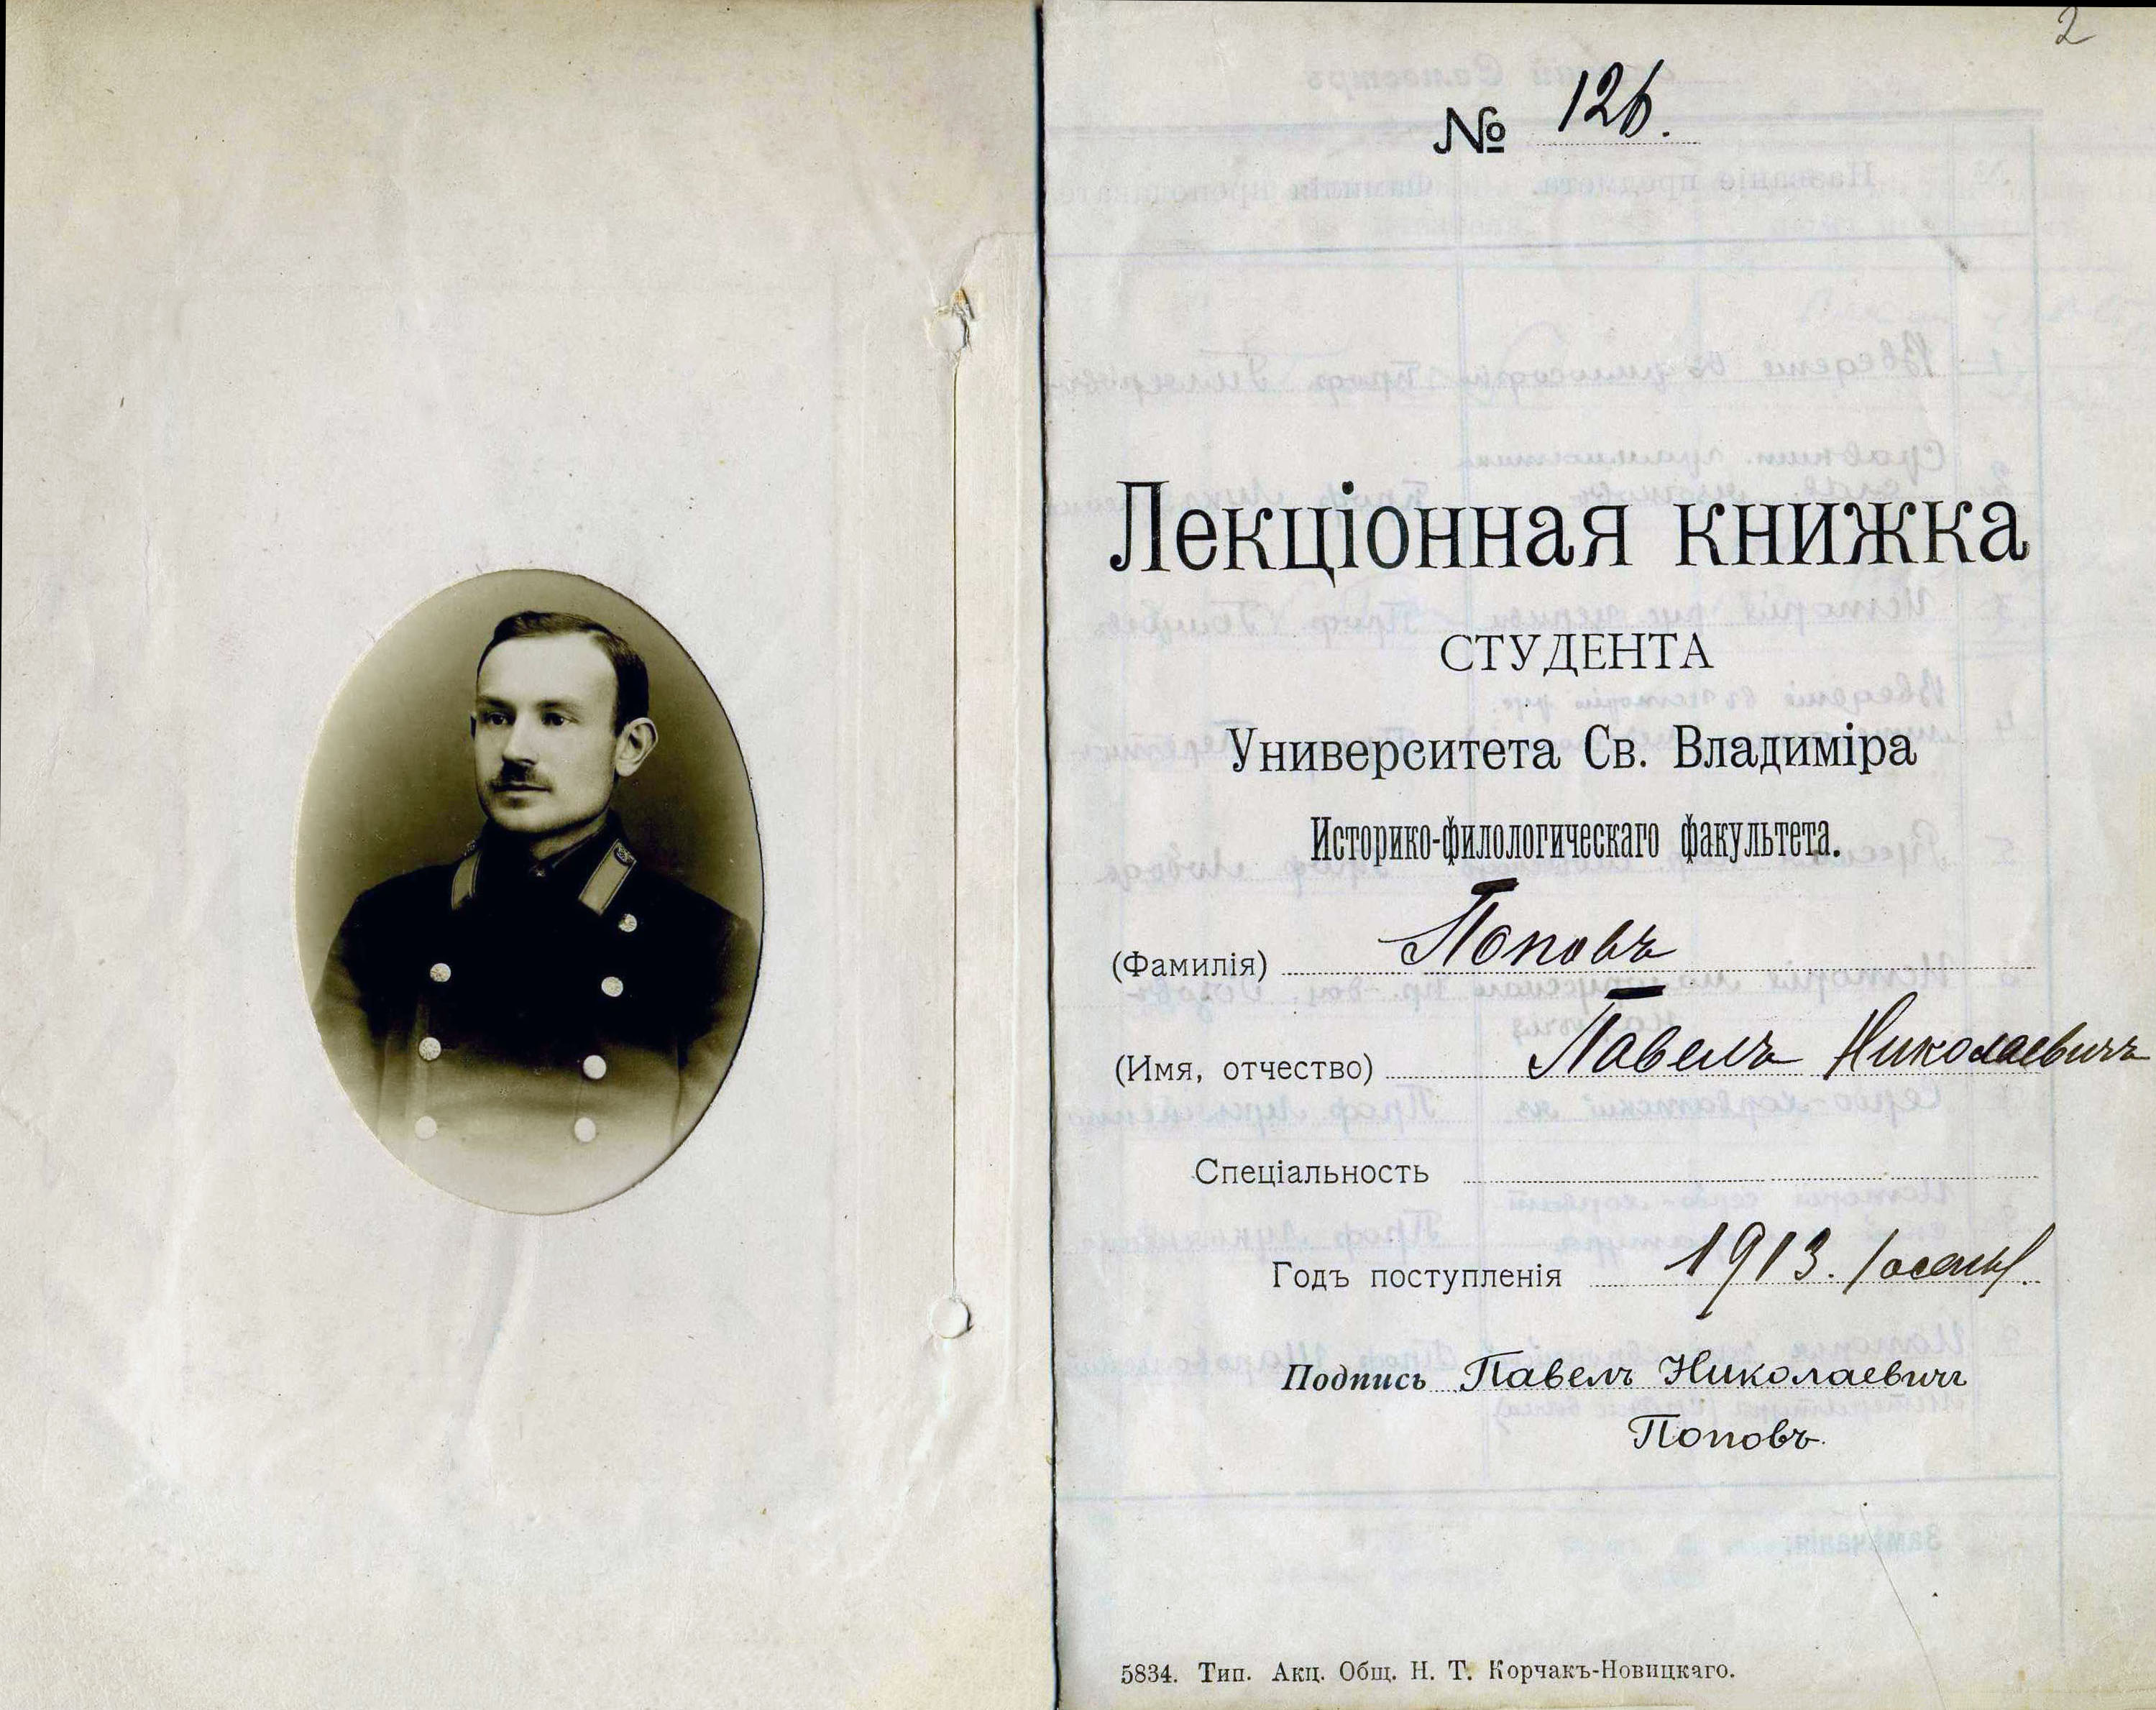 2
№ 126.
Лекціонная книжка
СТУДЕНТА
Университета Св. Владиміра
Историко-филологическаго факультета.
(Фамилія) Поповъ
(Имя, отчество) Павелъ Николаевичъ
Спеціальность
Годъ поступленія 1913. /осень/.
Подпись Павелъ Николаевичъ
Поповъ.
5834. Тип. Акц. Общ. Н. Т. Корчакъ-Новицкаго.